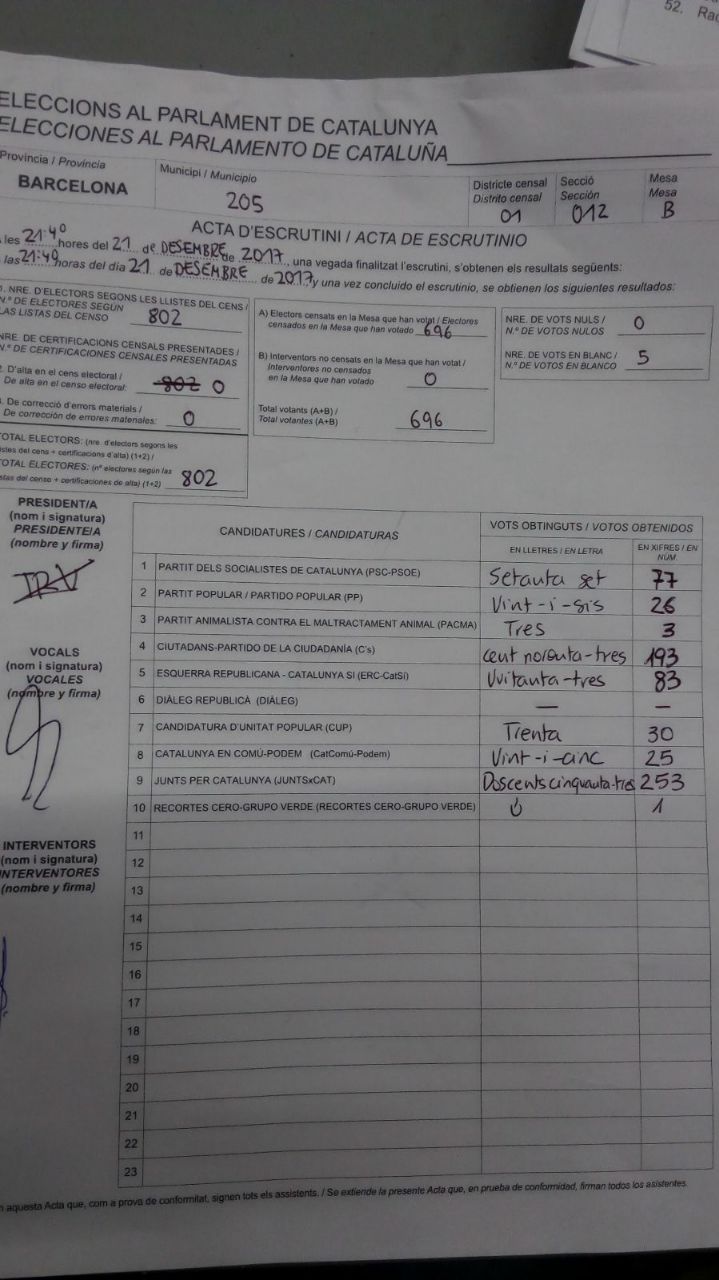 52. Rac
ELECCIONS AL PARLAMENT DE CATALUNYA
ELECCIONES AL PARLAMENTO DE CATALUÑA
Provincia / Província
BARCELONA
Municipi / Municipio
205
Districte censal
Distrito censal
01
Secció
Sección
012
Mesa
Mesa
B
ACTA D'ESCRUTINI / ACTA DE ESCRUTINIO
les 21:40 hores del 21 de DESEMBRE de 2017, una vegada finalitzat l'escrutini, s'obtenen els resultats següents:
las 21:40 horas del día 21 de DESEMBRE de 2017 y una vez concluido el escrutinio, se obtienen los siguientes resultados:
1. NRE. D'ELECTORS SEGONS LES LLISTES DEL CENS /
N.º DE ELECTORES SEGÚN
LAS LISTAS DEL CENSO
802
NRE. DE CERTIFICACIONS CENSALS PRESENTADES /
N.º DE CERTIFICACIONES CENSALES PRESENTADAS
2. D'alta en el cens electoral /
De alta en el censo electoral: 802 0
3. De correcció d'errors materials /
De corrección de errores materiales: 0
TOTAL ELECTORS: (nre. d'electors segons les
llistes del cens + certificacions d'alta) (1+2) /
TOTAL ELECTORES: (nº electores según las
listas del censo + certificaciones de alta) (1+2) 802
A) Electors censats en la Mesa que han votat / Electores
censados en la Mesa que han votado 696
B) Interventors no censats en la Mesa que han votat /
Interventores no censados
en la Mesa que han votado 0
Total votants (A+B) /
Total votantes (A+B) 696
NRE. DE VOTS NULS /
N.º DE VOTOS NULOS 0
NRE. DE VOTS EN BLANC /
N.º DE VOTOS EN BLANCO 5
PRESIDENT/A
(nom i signatura)
PRESIDENTE/A
(nombre y firma)
VOCALS
(nom i signatura)
VOCALES
(nombre y firma)
INTERVENTORS
(nom i signatura)
INTERVENTORES
(nombre y firma)
CANDIDATURES / CANDIDATURAS
VOTS OBTINGUTS / VOTOS OBTENIDOS
EN LLETRES / EN LETRA
EN XIFRES / EN NÚM.
1 PARTIT DELS SOCIALISTES DE CATALUNYA (PSC-PSOE) Setanta set 77
2 PARTIT POPULAR / PARTIDO POPULAR (PP) Vint-i-sis 26
3 PARTIT ANIMALISTA CONTRA EL MALTRACTAMENT ANIMAL (PACMA) Tres 3
4 CIUTADANS-PARTIDO DE LA CIUDADANÍA (C's) cent noranta-tres 193
5 ESQUERRA REPUBLICANA - CATALUNYA SI (ERC-CatSí) Vuitanta-tres 83
6 DIÀLEG REPUBLICÀ (DIÀLEG) — —
7 CANDIDATURA D'UNITAT POPULAR (CUP) Trenta 30
8 CATALUNYA EN COMÚ-PODEM (CatComú-Podem) Vint-i-cinc 25
9 JUNTS PER CATALUNYA (JUNTSxCAT) Doscents cinquanta-tres 253
10 RECORTES CERO-GRUPO VERDE (RECORTES CERO-GRUPO VERDE) U 1
11
12
13
14
15
16
17
18
19
20
21
22
23
n aquesta Acta que, com a prova de conformitat, signen tots els assistents. / Se extiende la presente Acta que, en prueba de conformidad, firman todos los asistentes.